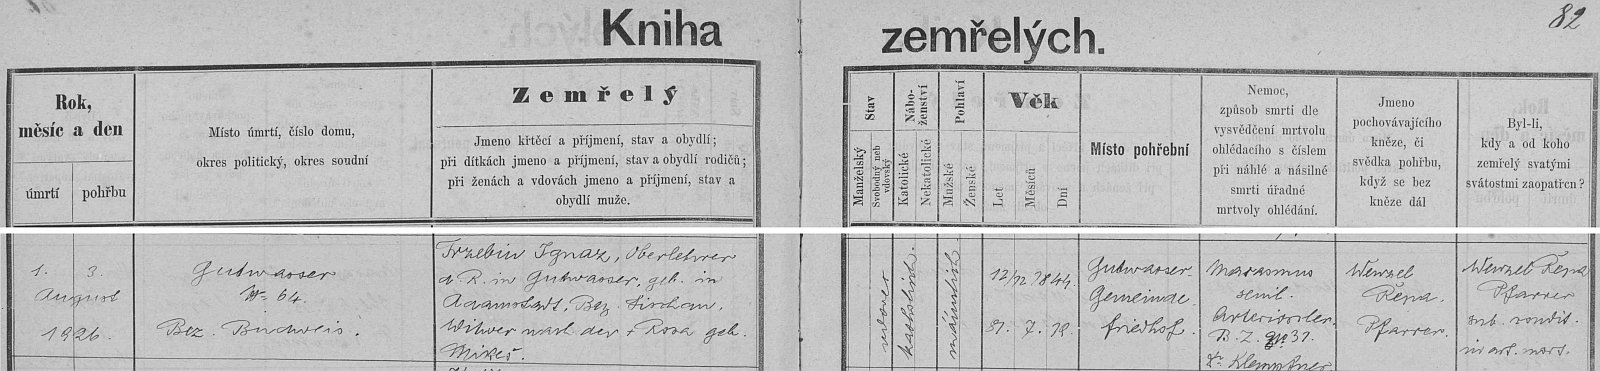 Kniha zemřelých.
82
Rok,
měsíc a den
úmrtí
pohřbu
Místo úmrtí, číslo domu,
okres politický, okres soudní
Zemřelý
Jmeno křtěcí a příjmení, stav a obydlí;
při dítkách jmeno a příjmení, stav a obydlí rodičů;
při ženách a vdovách jmeno a příjmení, stav a
obydlí muže.
Stav
Manželský
Svobodný neb
vdovský
Nábo-
ženství
Katolické
Nekatolické
Pohlaví
Mužské
Ženské
Věk
Let
Měsíců
Dní
Místo pohřební
Nemoc,
způsob smrti dle
vysvědčení mrtvolu
ohlédacího s číslem
při náhlé a násilné
smrti úřadné
mrtvoly ohlédání.
Jmeno
pochovávajícího
kněze, či
svědka pohřbu,
když se bez
kněze dál
Byl-li,
kdy a od koho
zemřelý svatými
svátostmi zaopatřen?
1. 3.
August
1926.
Gutwasser
Nr. 64.
Bez. Budweis.
Trzebin Ignaz, Oberlehrer
d. R. in Gutwasser, geb. in
Adamstadt, Bez. Lischau,
Witwer nach der † Rosa geb.
Mikeš.
Witwer
katholisch
männlich
12/12 1844.
81. 7. 19.
Gutwasser.
Gemeinde
friedhof.
Marasmus
senil.
Arterioskler.
B. Z. No 31.
Dr. Klempfner
Wenzel
Řepa.
Pfarrer.
Wenzel Řepa
Pfarrer
sub. condit.
in art. mort.